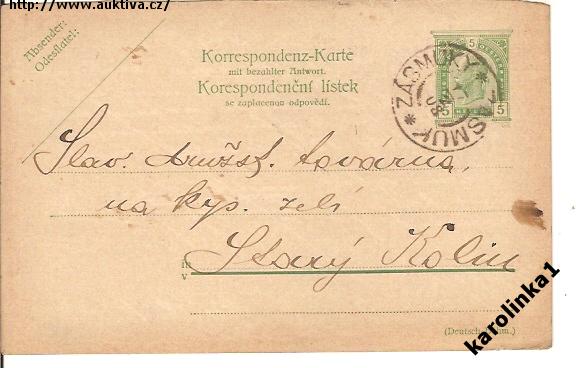 http://www.auktiva.cz/
Absender:
Odesílatel:
Korrespondenz-Karte
mit bezahlter Antwort.
Korespondenční lístek
se zaplacenou odpovědí.
5
5 5
ZÁSMUKY * ZÁSMUK *
Slav. družst. továrna
na kys. zelí
in
v
Starý Kolín
(Deutsch-böhm.)
karolinka1